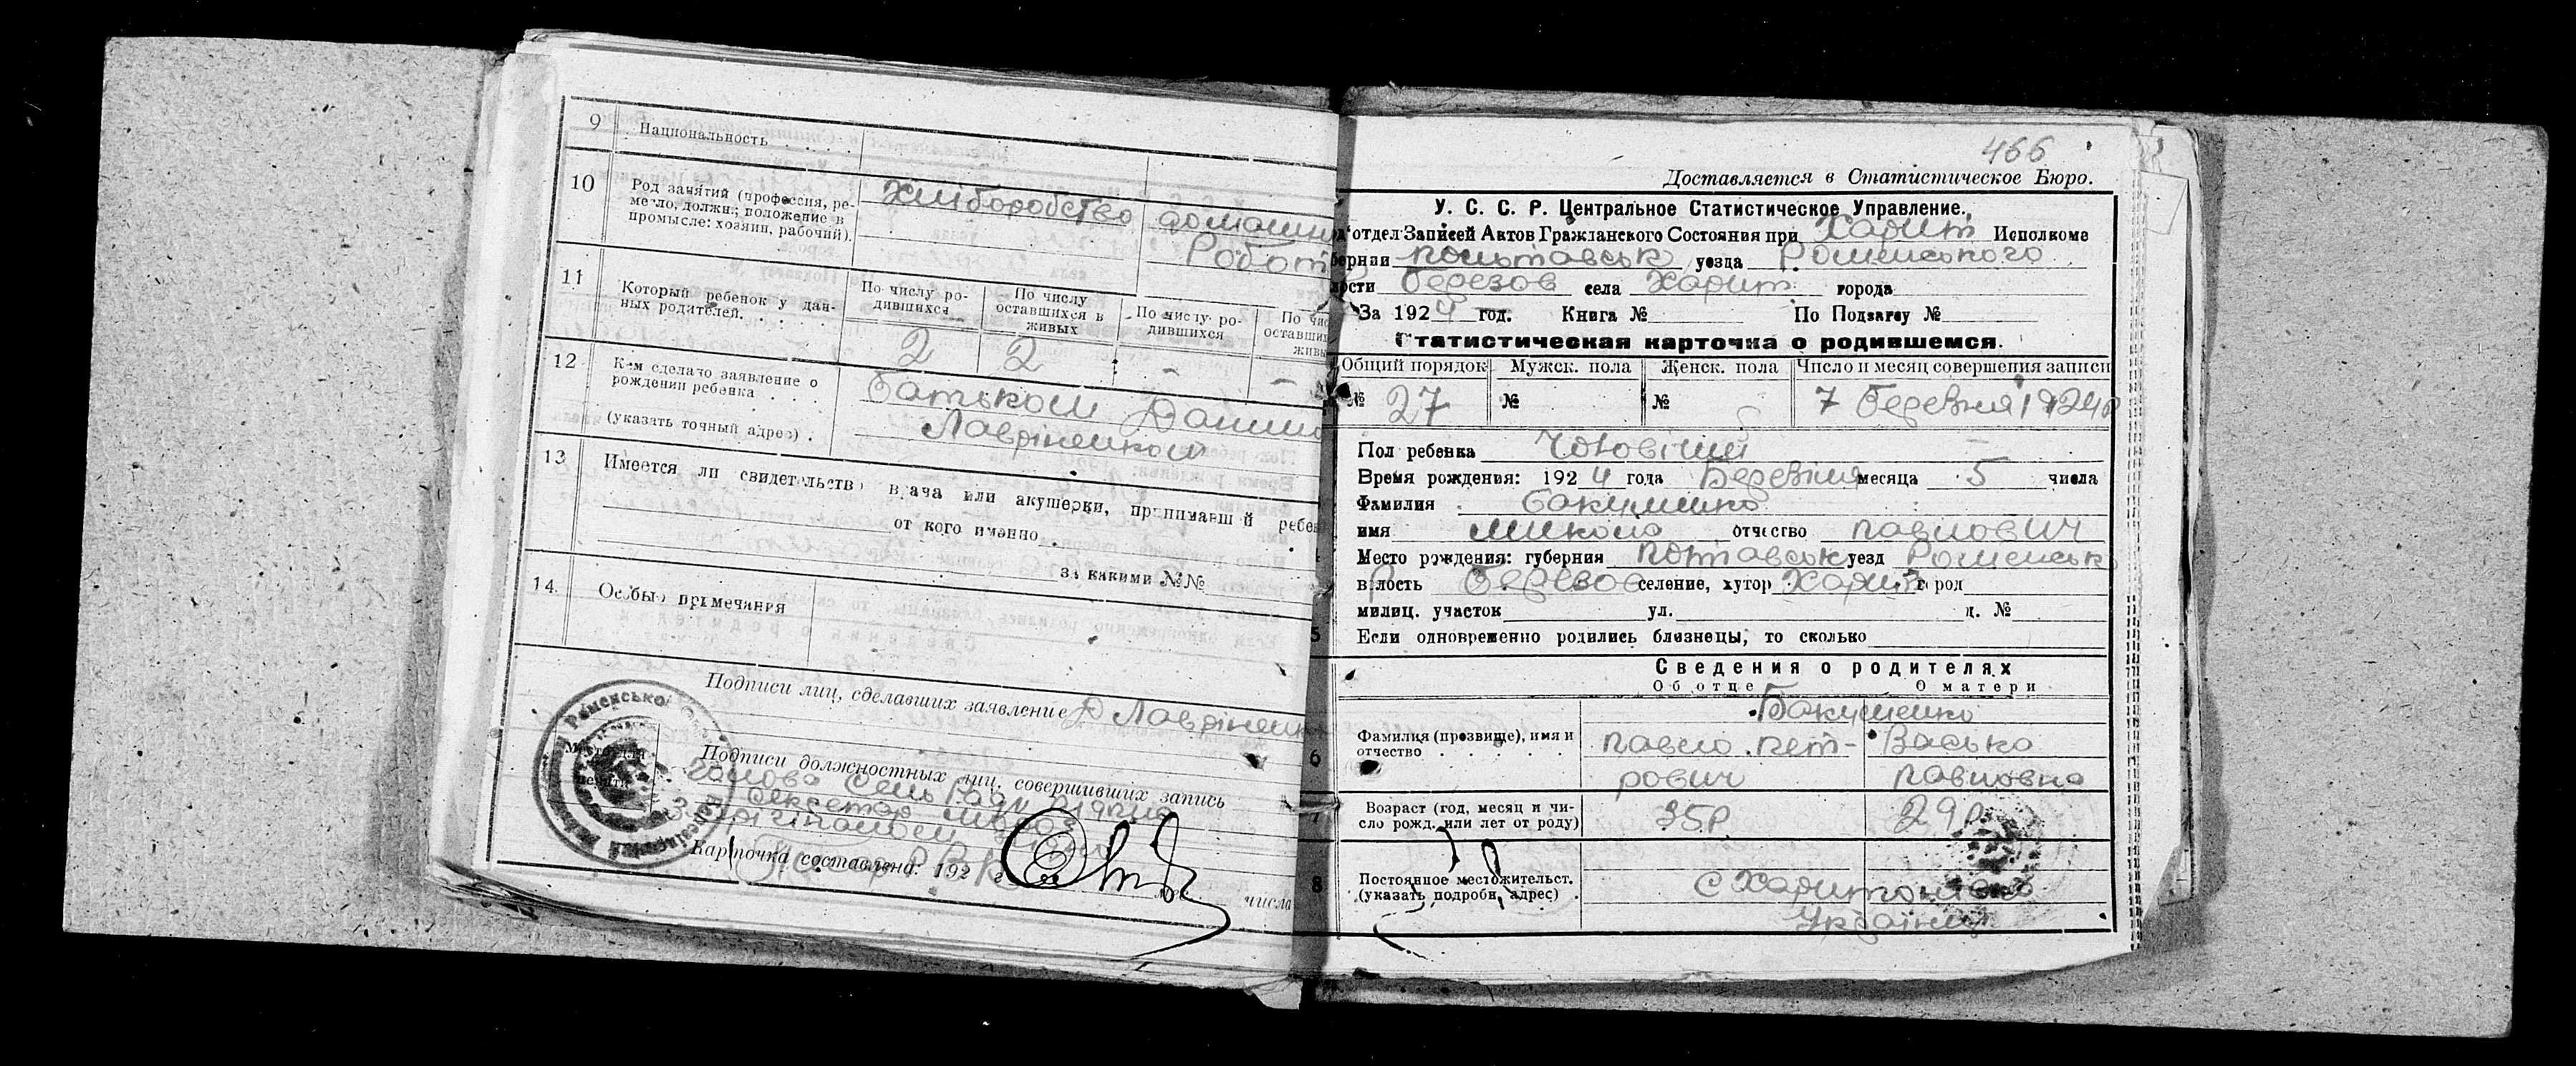 9 Национальность . . . . .
10 Род занятий (профессия, ре-
месло, должн.; положение в
промысле: хозяин, рабочий).
Хліборобство домашня
Робот
11 Который ребенок у дан-
ных родителей. . . . .
По числу ро-
дившихся
По числу
оставшихся в
живых
По числу ро-
дившихся
По чис
оставши
живы
2 2 - -
12 Кем сделано заявление о
рождении ребенка . . . .
(указать точный адрес) .
батьком Данило
Лавріненком
13 Имеется ли свидетельство врача или акушерки, принимавшей ребен
от кого именно
за какими №№
14 Особые примечания
Подписи лиц, сделавших заявление Д Лавріненко
Место для
печати
Подписи должностных лиц, совершивших запись
голова Сель Ради
Секретар
З орігіналом
Карточка составлена: 192 г. числа
466
Доставляется в Статистическое Бюро.
У. С. С. Р. Центральное Статистическое Управление.
отдел Записей Актов Гражданского Состояния при Харит Исполкоме
бернии полтавськ уезда Роменського
лости березов села Харит города
За 1924 год. Книга № По Подзагсу №
Статистическая карточка о родившемся.
Общий порядок Мужск. пола Женск. пола Число и месяц совершения записи
№ 27 № № 7 березня 1924р
Пол ребенка Чоловічий
Время рождения: 1924 года Березня месяца 5 числа
Фамилия Бакуменко
имя Микола отчество павлович
Место рождения: губерния полтавськ уезд Роменськ
волость березов селение, хутор Харит город
милиц. участок ул. д. №
5 Если одновременно родились близнецы, то сколько
Сведения о родителях
Об отце О матери
Бакуменко
6 Фамилия (прозвище), имя и
отчество . . . . .
павло пет-
рович
Васька
павловна
7 Возраст (год, месяц и чи-
сло рожд. или лет от роду)
35р 29р
8 Постоянное местожительст.
(указать подробн. адрес) .
с Харитонівка
Українці